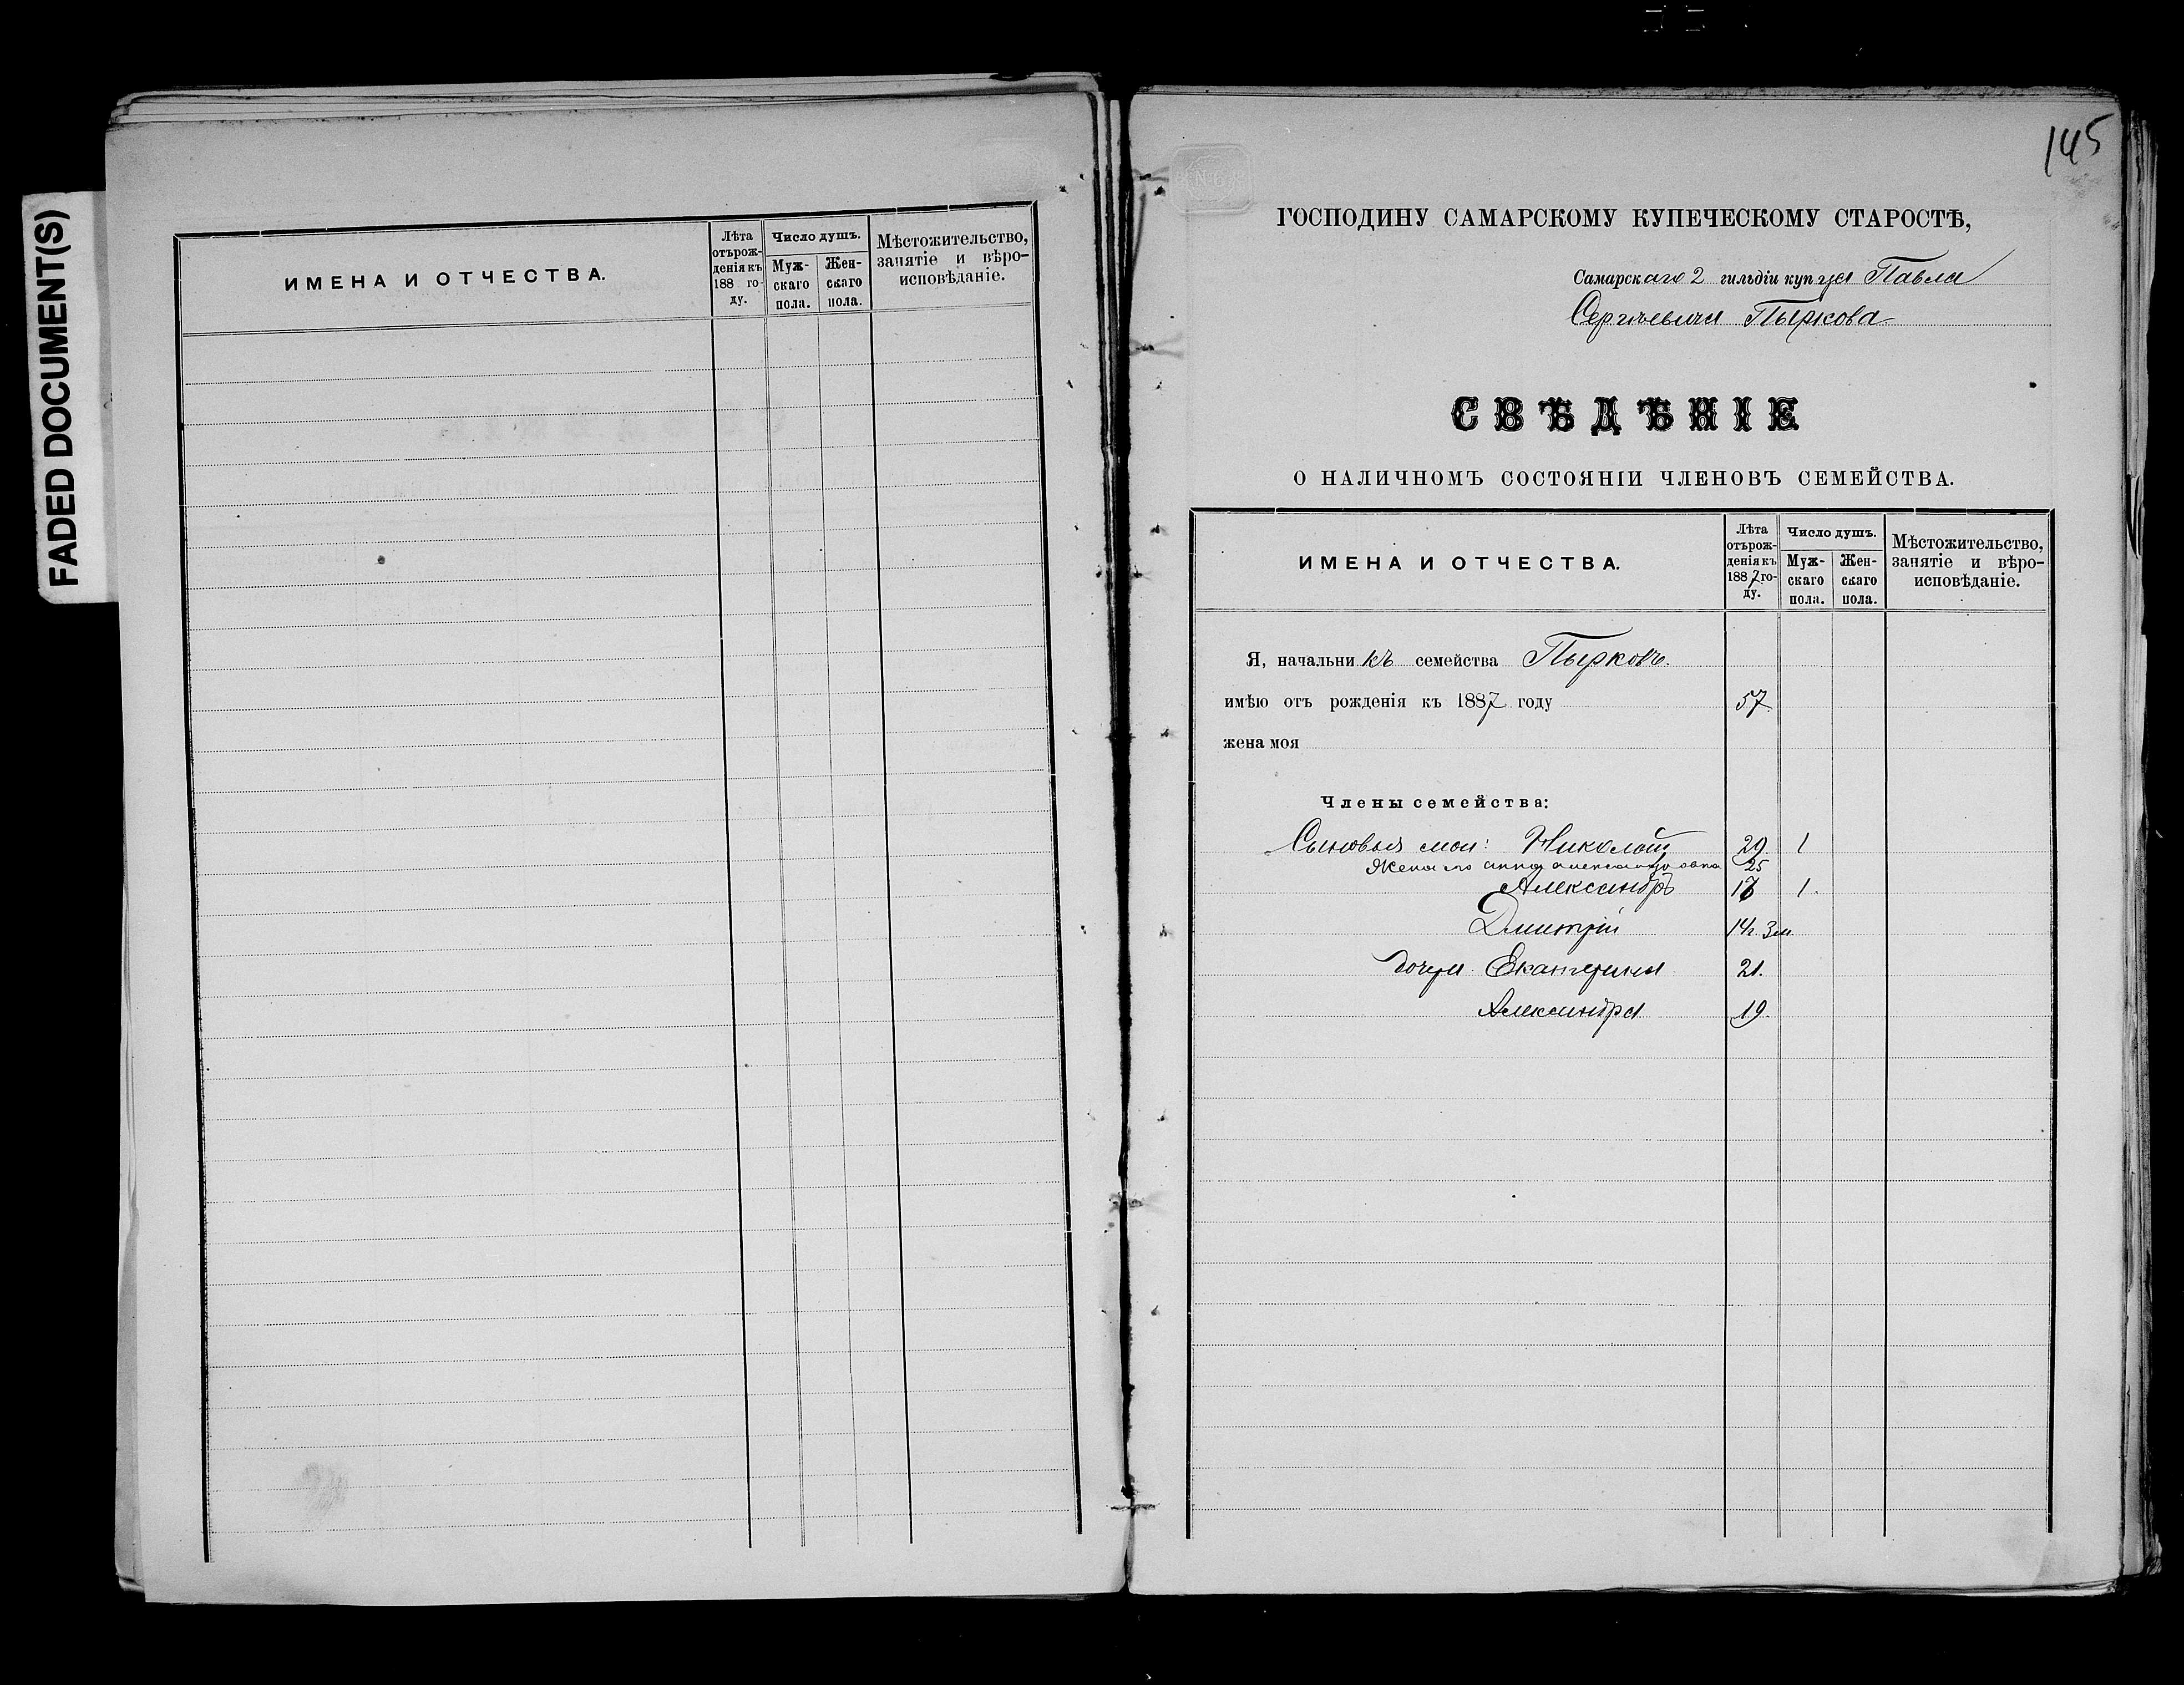 FADED DOCUMENT(S)
ИМЕНА И ОТЧЕСТВА.
Лѣта
отъ рож-
денія къ
188 го-
ду.
Число душъ.
Муж-
скаго
пола.
Жен-
скаго
пола.
Мѣстожительство,
занятіе и вѣро-
исповѣданіе.
145
ГОСПОДИНУ САМАРСКОМУ КУПЕЧЕСКОМУ СТАРОСТѢ,
Самарскаго 2 гильдіи купца Павла
Сергѣевича Пыркова
СВѢДѢНІЕ
О НАЛИЧНОМЪ СОСТОЯНІИ ЧЛЕНОВЪ СЕМЕЙСТВА.
ИМЕНА И ОТЧЕСТВА.
Лѣта
отъ рож-
денія къ
1887 го-
ду.
Число душъ.
Муж-
скаго
пола.
Жен-
скаго
пола.
Мѣстожительство,
занятіе и вѣро-
исповѣданіе.
Я, начальникъ семейства Пырковъ.
имѣю отъ рожденія къ 1887 году 57.
жена моя
Члены семейства:
Сыновья мои: Николай 29. 1
Жена его Анна Александровна 25
Александръ 17 1.
Дмитрій 14 г. 3 м.
дочери Екатерина 21.
Александра 19.